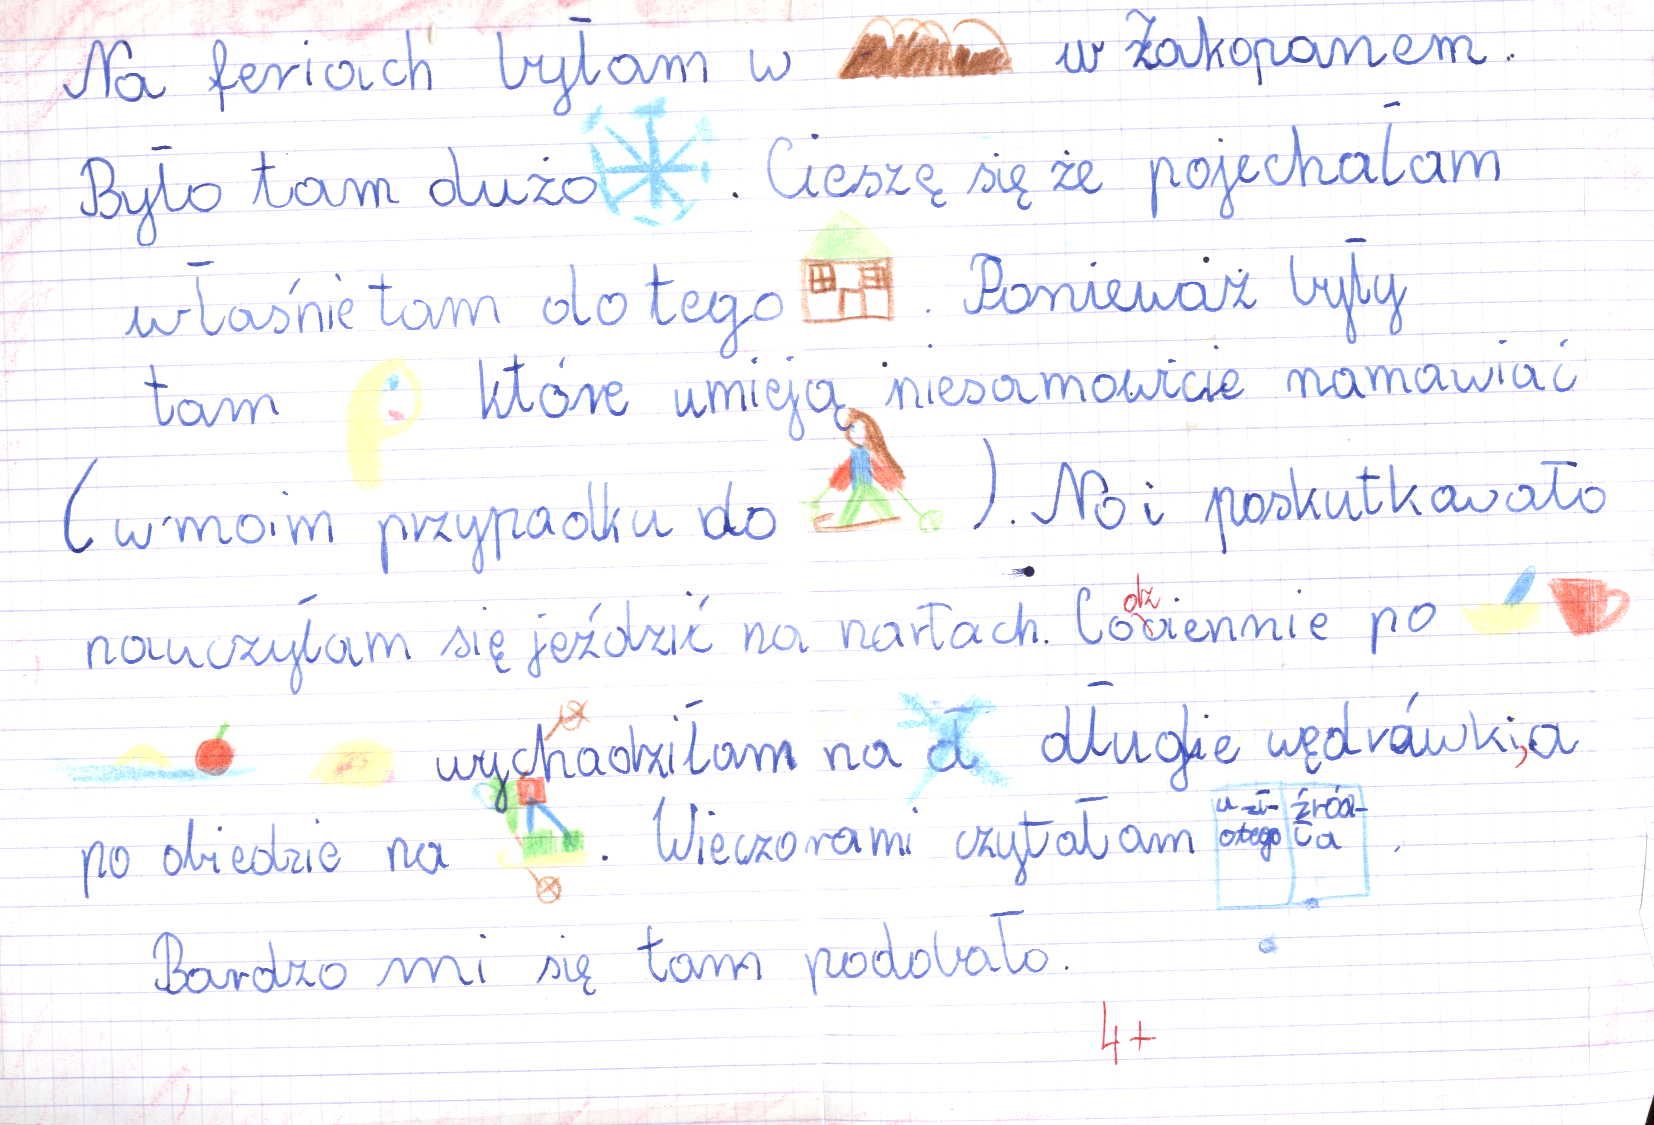 Na feriach byłam w w Zakopanem.
Było tam dużo . Cieszę się że pojechałam
właśnie tam do tego . Ponieważ były
tam które umieją niesamowicie namawiać
(w moim przypadku do ). No i poskutkowało
nauczyłam się jeździć na nartach. Codziennie po
wychodziłam na długie wędrówki, a
po obiedzie na . Wieczorami czytałam źród-
ła .
Bardzo mi się tam podobało.
4+